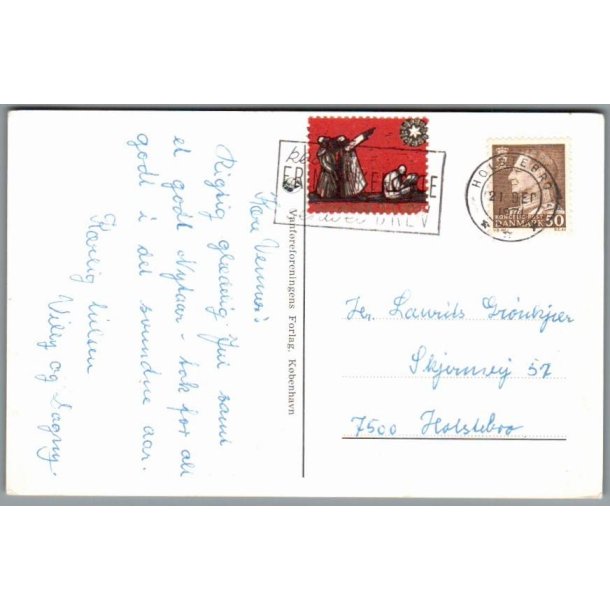 Kære Venner's
Rigtig glædelig Jul samt
et godt Nytaar - tak for alt
godt i det svundne aar.
Kærlig hilsen
Villy og Dagny.
Vanføreforeningens Forlag. København
BREV
HOLSTEBRO
21 DEC
KONGELIG POST
DANMARK 50
Hr. Laurids Grönkjær
Skjernvej 57
7500 Holstebro